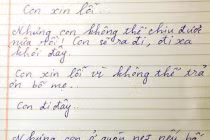 Con xin lỗi...
Nhưng con không thể chịu được
nữa rồi! Con sẽ ra đi, đi xa
khỏi đây.
Con xin lỗi vì không thể trả
ơn bố mẹ...
Con đi đây...
Nhưng con ở quán net nếu bố